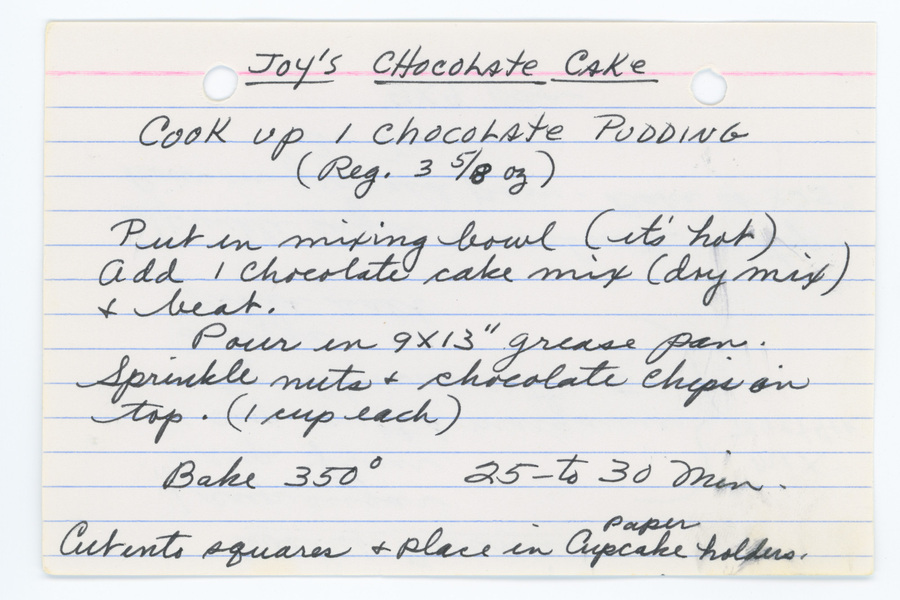 Joy's Chocolate Cake
Cook up 1 chocolate Pudding
(Reg. 3 5/8 oz)
Put in mixing bowl (it's hot)
Add 1 chocolate cake mix (dry mix)
+ beat.
Pour in 9x13" grease pan.
Sprinkle nuts + chocolate chips on
top. (1 cup each)
Bake 350° 25-to 30 Min.
paper
Cut into squares + place in Cupcake holders.